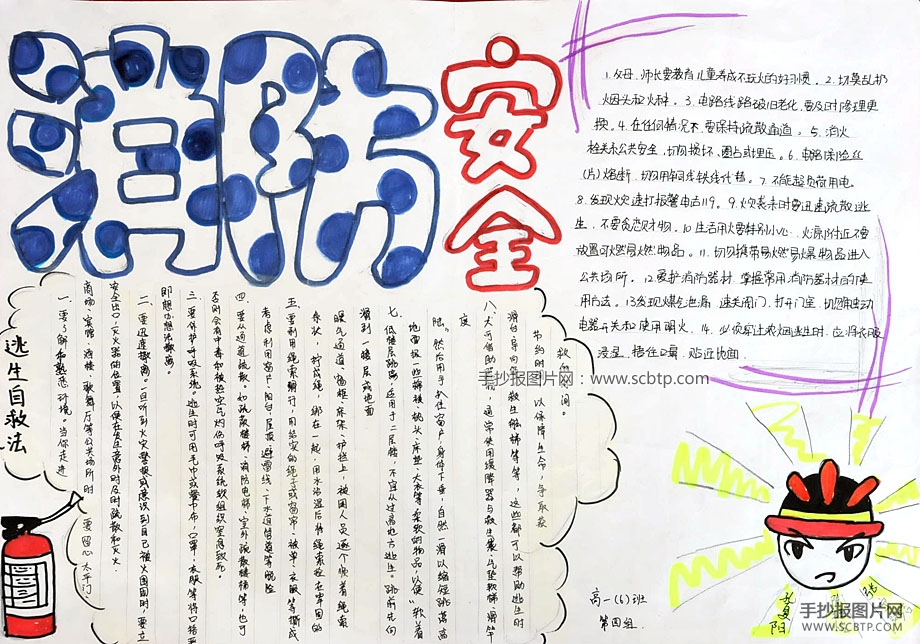 消防
安全
1.父母、师长要教育儿童养成不玩火的好习惯。2.切莫乱扔
烟头和火种。3.电路线路破旧老化,要及时修理更
换。4.在任何情况下,要保持疏散通道。5.消火
栓关系公共安全,切勿损坏、圈占或埋压。6.电路保险丝
(片)熔断,切勿用铜线铁线代替。7.不能超负荷用电。
8.发现火灾速打报警电话119。9.火灾袭来时要迅速疏散逃
生,不要贪恋财物。10.生活用火要特别小心,火源附近不要
放置可燃易燃物品。11.切勿携带易燃易爆物品进入
公共场所。12.爱护消防器材,掌握常用消防器材的使
用方法。13.发现煤气泄漏,速关阀门,打开门窗,切勿触动
电器开关和使用明火。14.必须穿过浓烟逃生时,应将衣服
浸湿、捂住口鼻、贴近地面
逃生自救法
一、要了解和熟悉环境。当你走进
商场、宾馆、酒楼、歌舞厅等公共场所时
要留心太平门
安全出口、灭火器的位置,以便在发生意外时及时疏散和灭火。
二、要迅速撤离。一旦听到火灾警报或意识到自己被火围困时,要立
即想办法撤离。
三、要保护呼吸系统。逃生时可用毛巾或餐巾布、口罩、衣服等将口捂严
否则会有中毒和被热空气灼伤呼吸系统软组织窒息致死。
四、要从通道疏散。如疏散楼梯、消防电梯、室外疏散楼梯等,也可
考虑利用窗户、阳台、屋顶、避雷线、下水道管道等脱险
五、要利用绳索滑行,用结实的绳子或窗帘、被单、衣服等撕成
条状,拧成绳,
滑到一楼层或地面
七、低楼层跳离,适用于二层楼,不宜从过高地方逃生。跳前先向
地面投一些棉被、枕头、床垫、大衣等柔软的物品,以便
软着
陆。然后用手扒住窗户,身体下垂,自然一滑以缩短跳落高
度
节约时间,以保障生命,争取获
救的时间。
手抄报图片网:www.scbtp.com
高一(6)班
第四组
手抄报图片网
WWW.SCBTP.COM